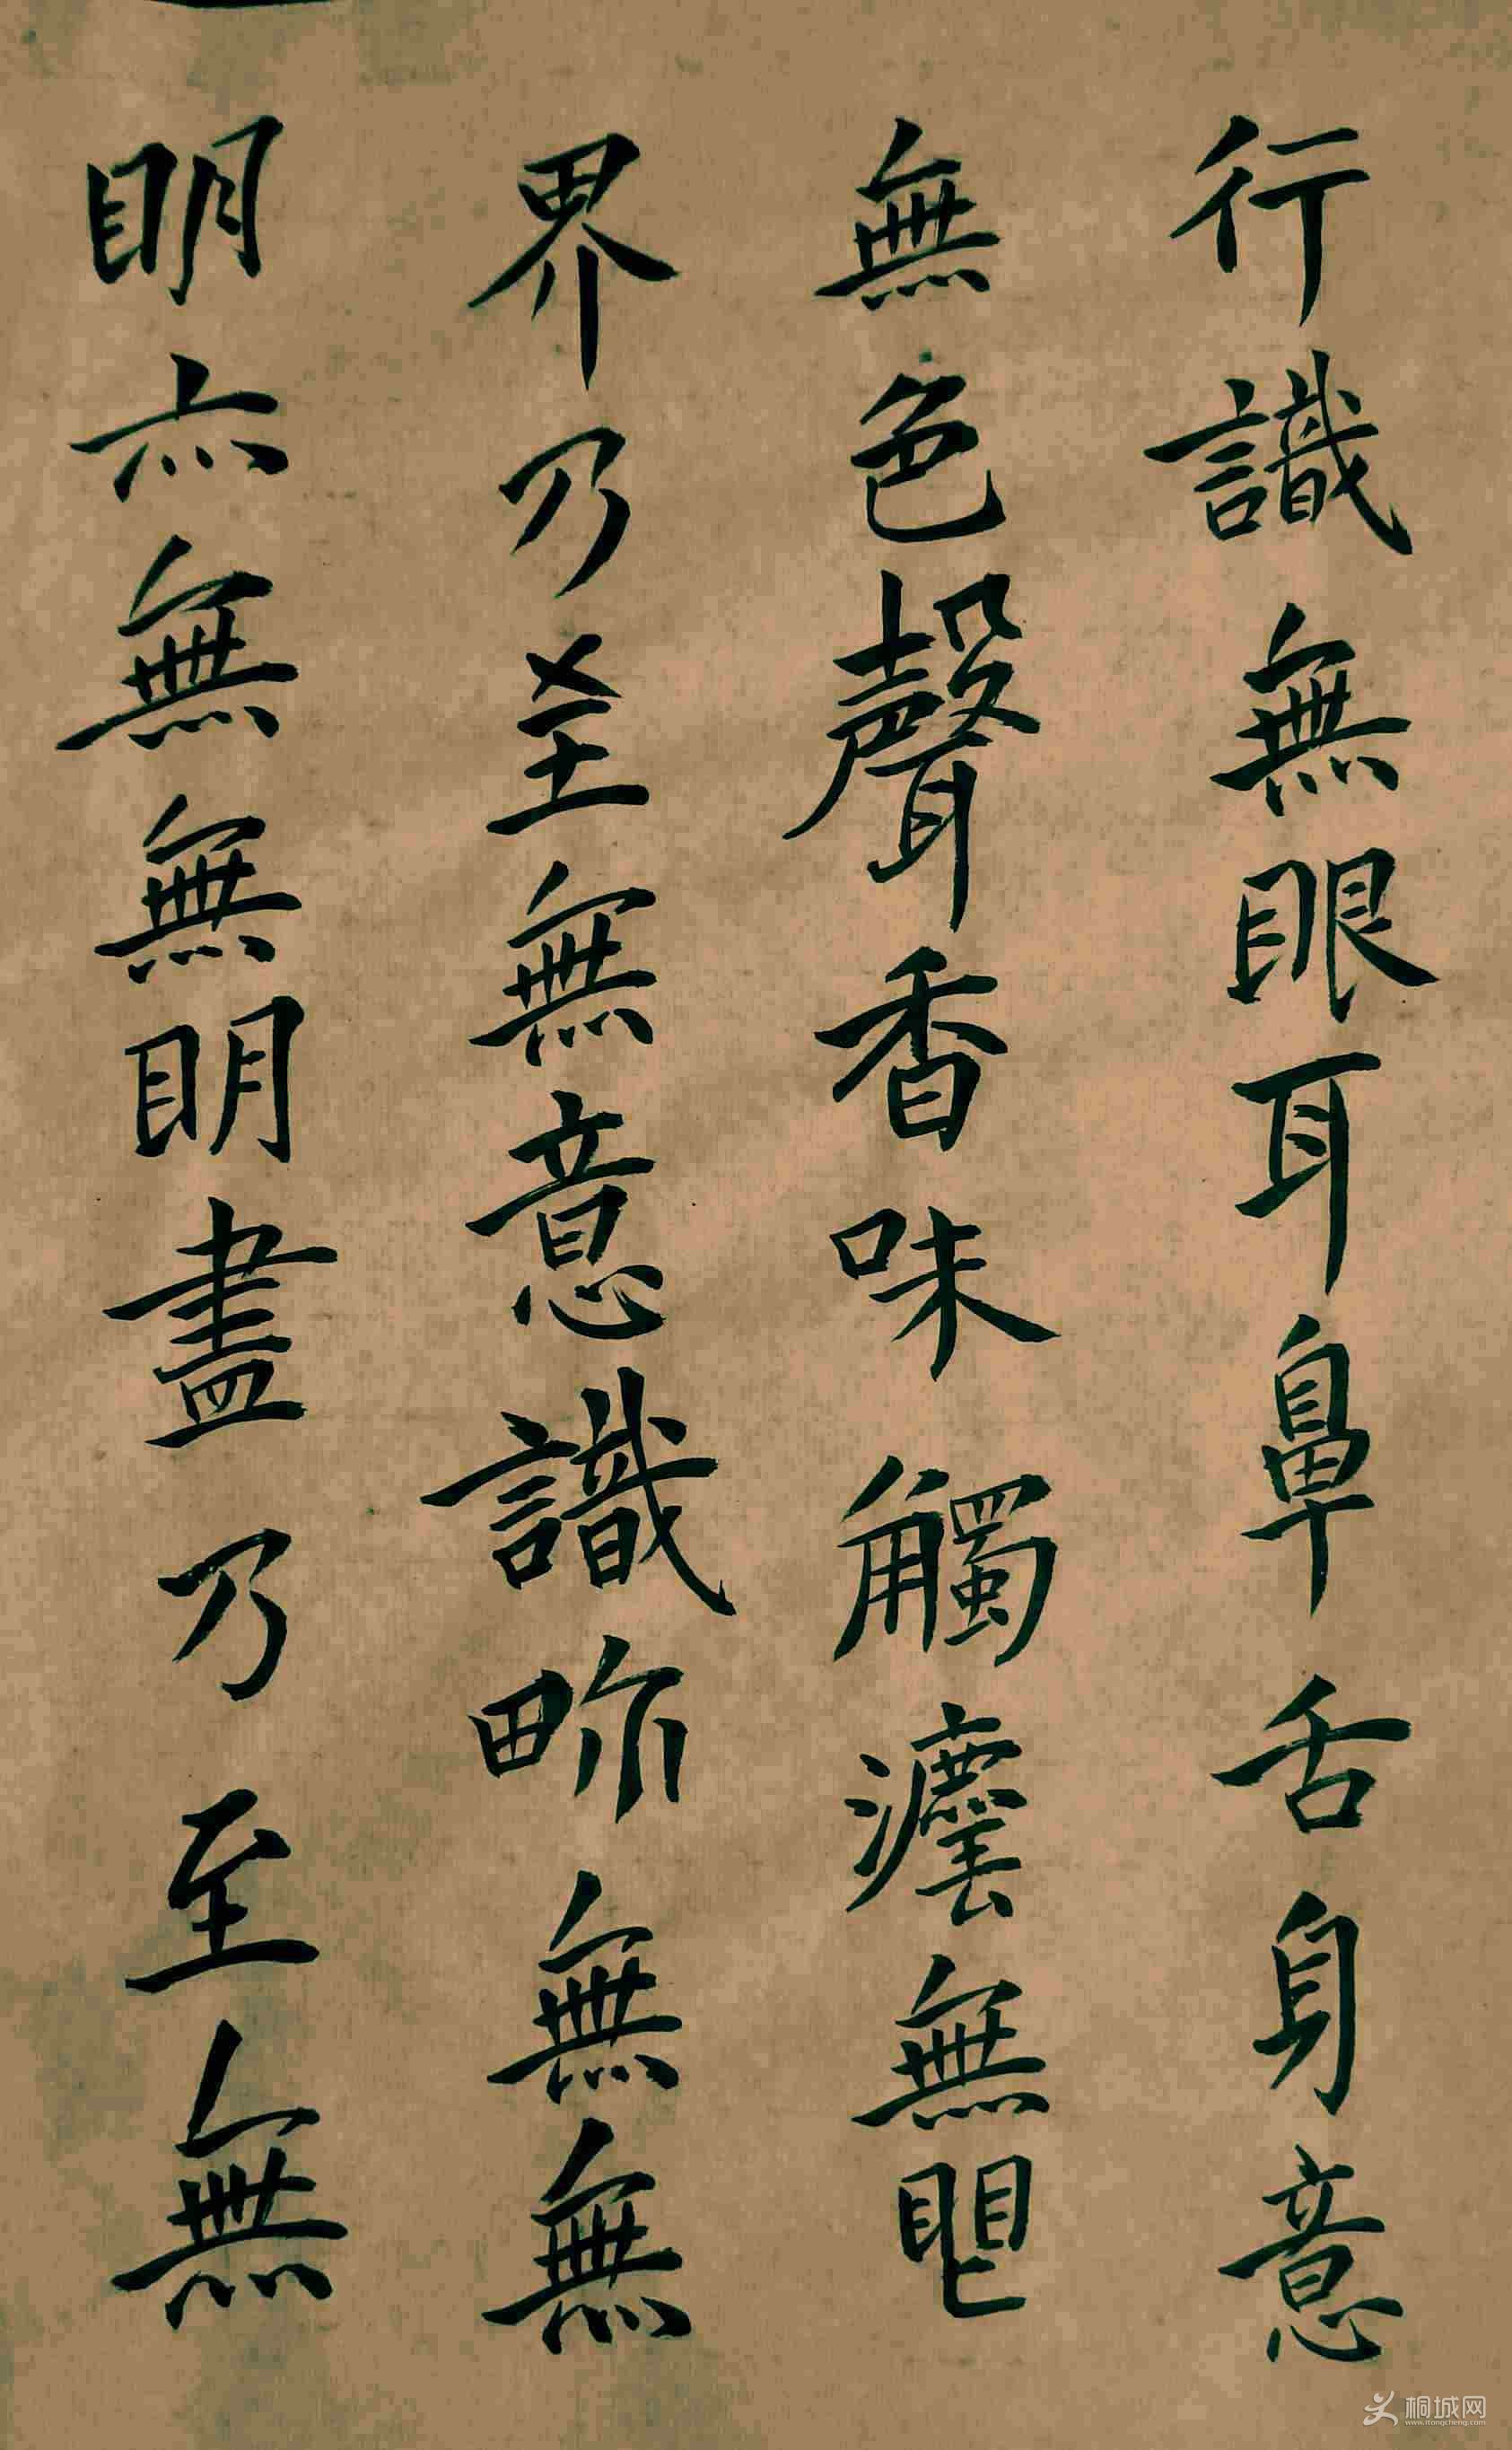 行識無眼耳鼻舌身意
無色聲香味觸灋無眼
界乃至無意識界無無
明亦無無明盡乃至無
桐城网
www.itongcheng.com